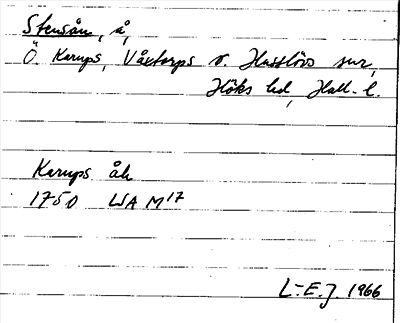 Stensån, å,
Ö. Karups, Våxtorps o. Hasslövs snr,
Höks hd, Hall. l.
Karups åh
1750 LSA M17
L-E. J. 1966